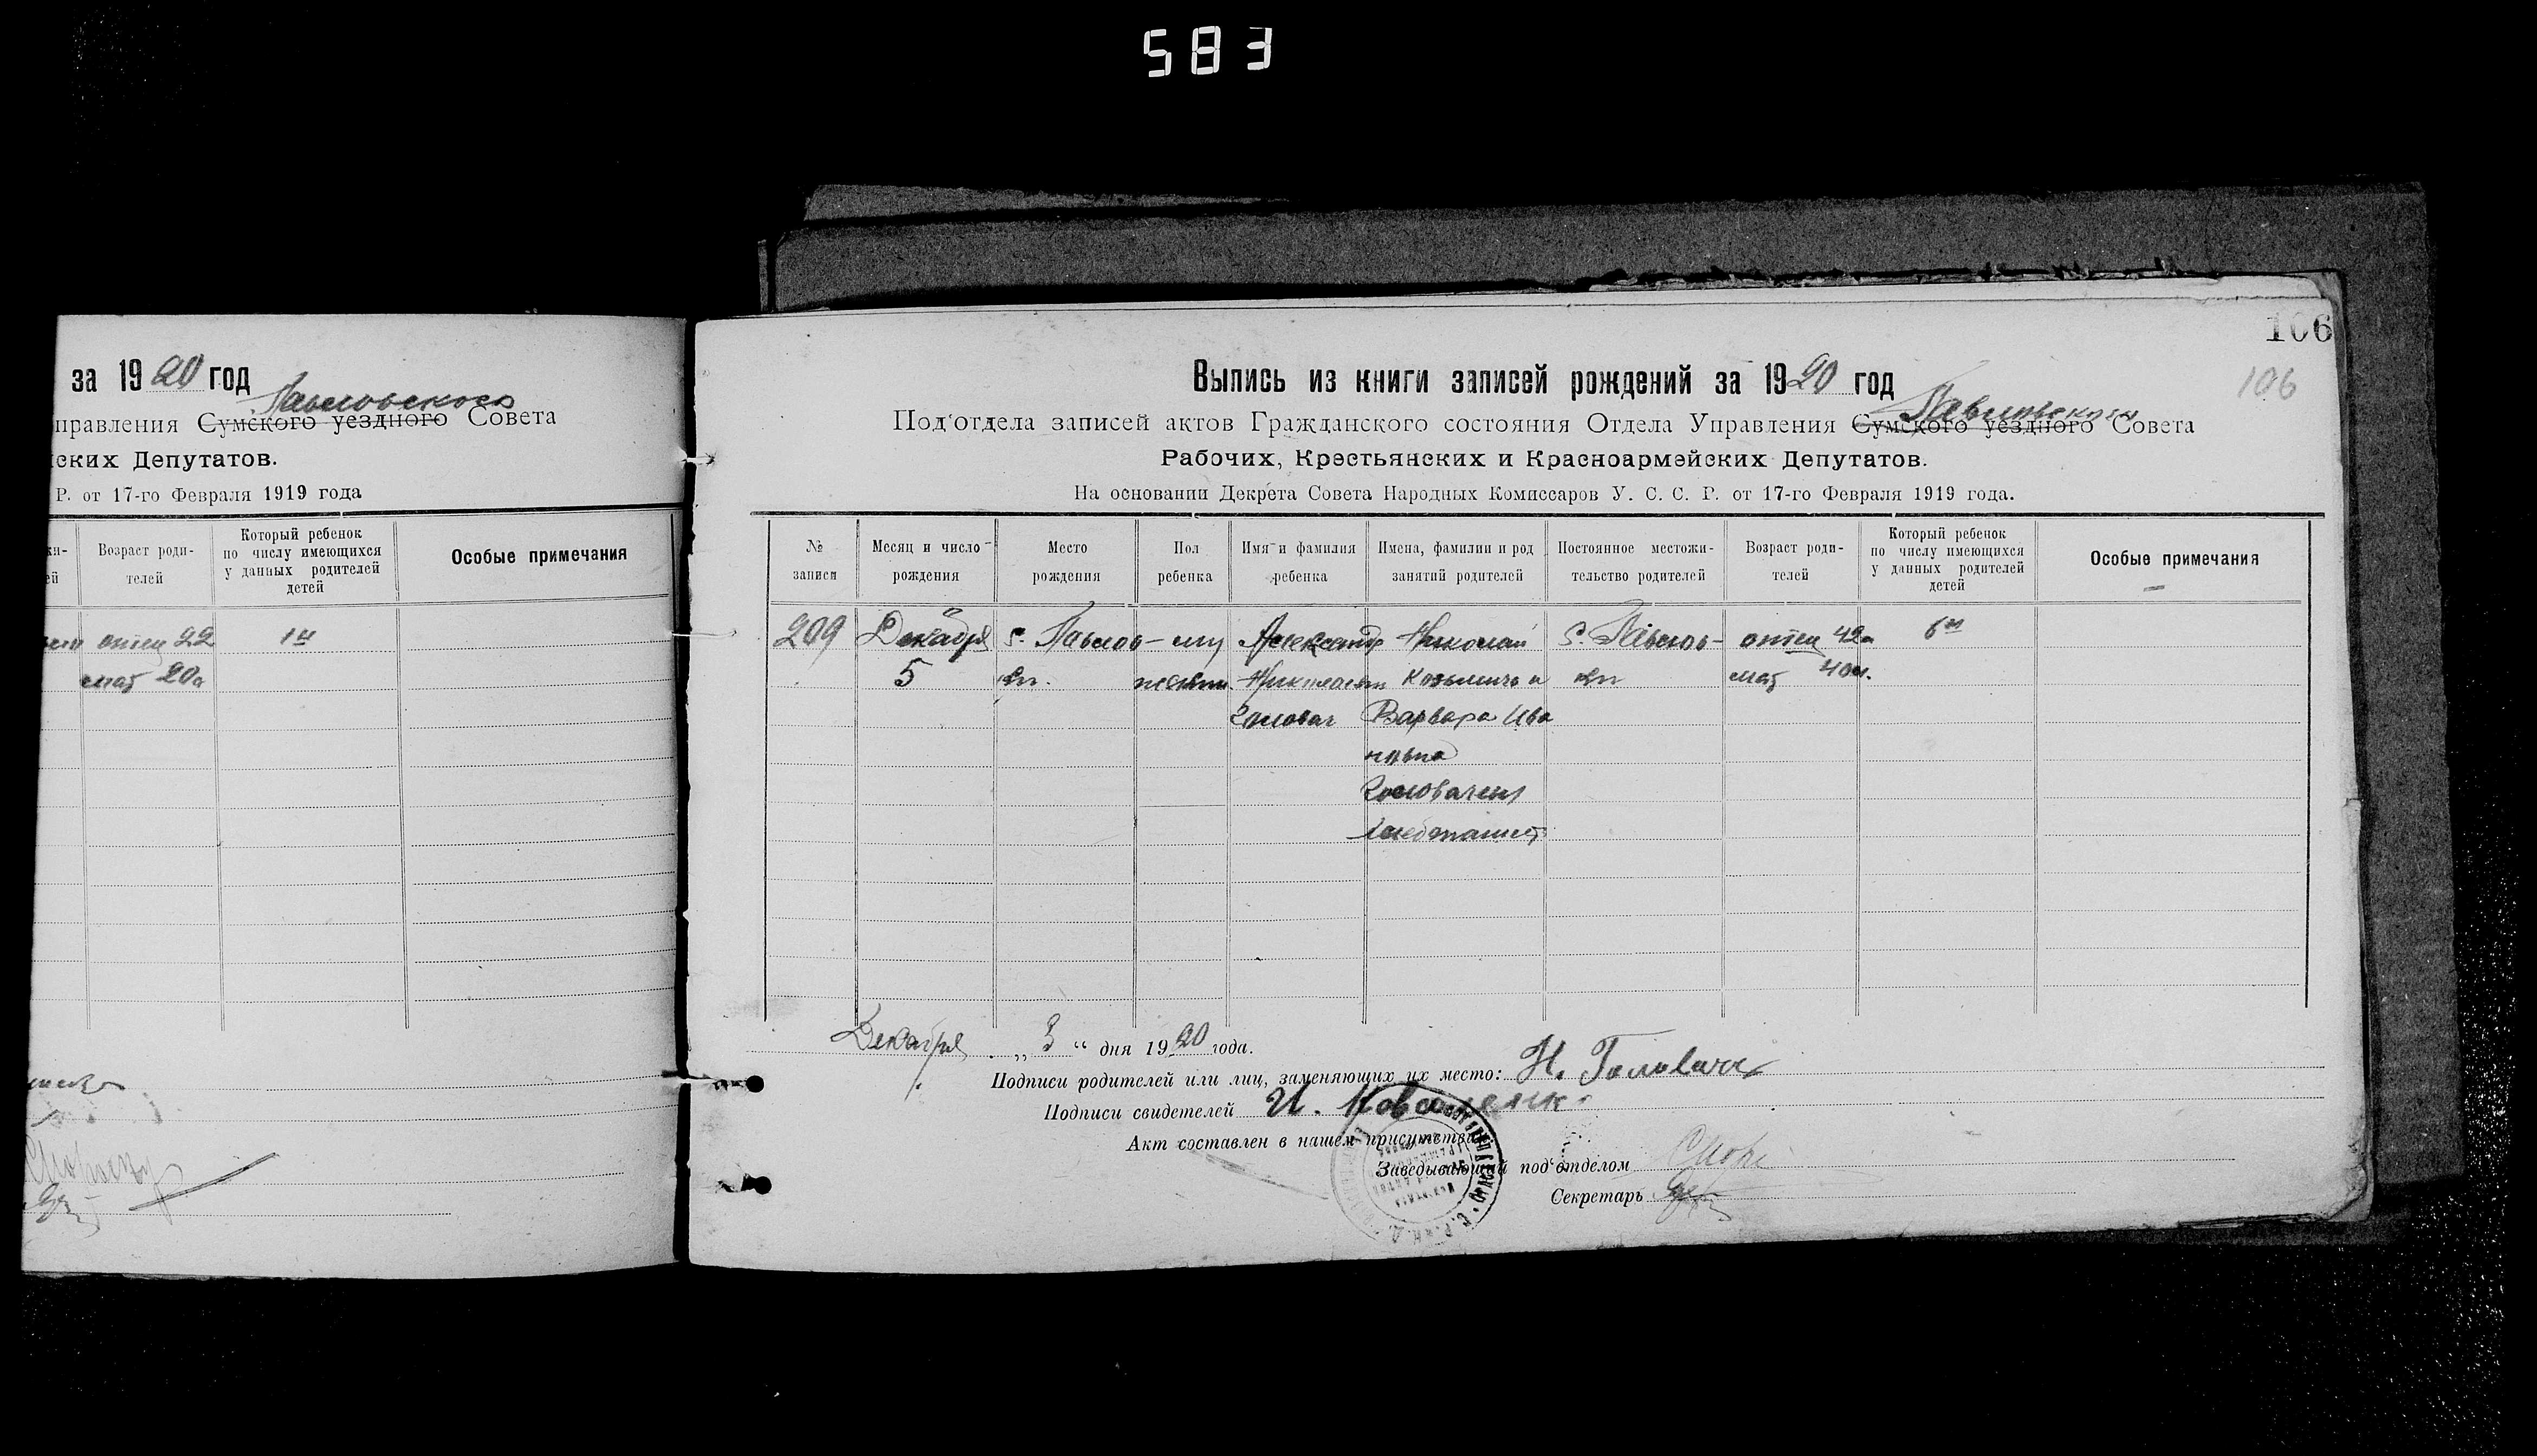 583
за 1920 год
Павловского
правления Сумского уездного Совета
ских Депутатов.
Р. от 17-го Февраля 1919 года
Возраст роди-
телей
Который ребенок
по числу имеющихся
у данных родителей
детей
Особые примечания
отец 22
1й
мат 20л
106
106
Выпись из книги записей рождений за 1920 год
Павловского
Под'отдела записей актов Гражданского состояния Отдела Управления Сумского уездного Совета
Рабочих, Крестьянских и Красноармейских Депутатов.
На основании Декрета Совета Народных Комиссаров У. С. С. Р. от 17-го Февраля 1919 года.
№
записи
Месяц и число
рождения
Место
рождения
Пол
ребенка
Имя и фамилия
ребенка
Имена, фамилии и род
занятий родителей
Постоянное местожи-
тельство родителей
Возраст роди-
телей
Который ребенок
по числу имеющихся
у данных родителей
детей
Особые примечания
209
Декабря
5
с. Павлов-
ки.
му
жеский.
Александр
Николаевич
Головач
Николай
Козьмичъ и
Варвара Ива
новна
Головачеи
Хлебопашец
С. Павлов-
ки
отец 42л
мат 40л.
6й
Декабря „3“ дня 1920 года.
Подписи родителей или лиц, заменяющих их место: Н. Головач
Подписи свидетелей И. Коваленко
Акт составлен в нашем присутствии
Заведывающий под'отделом
Секретарь